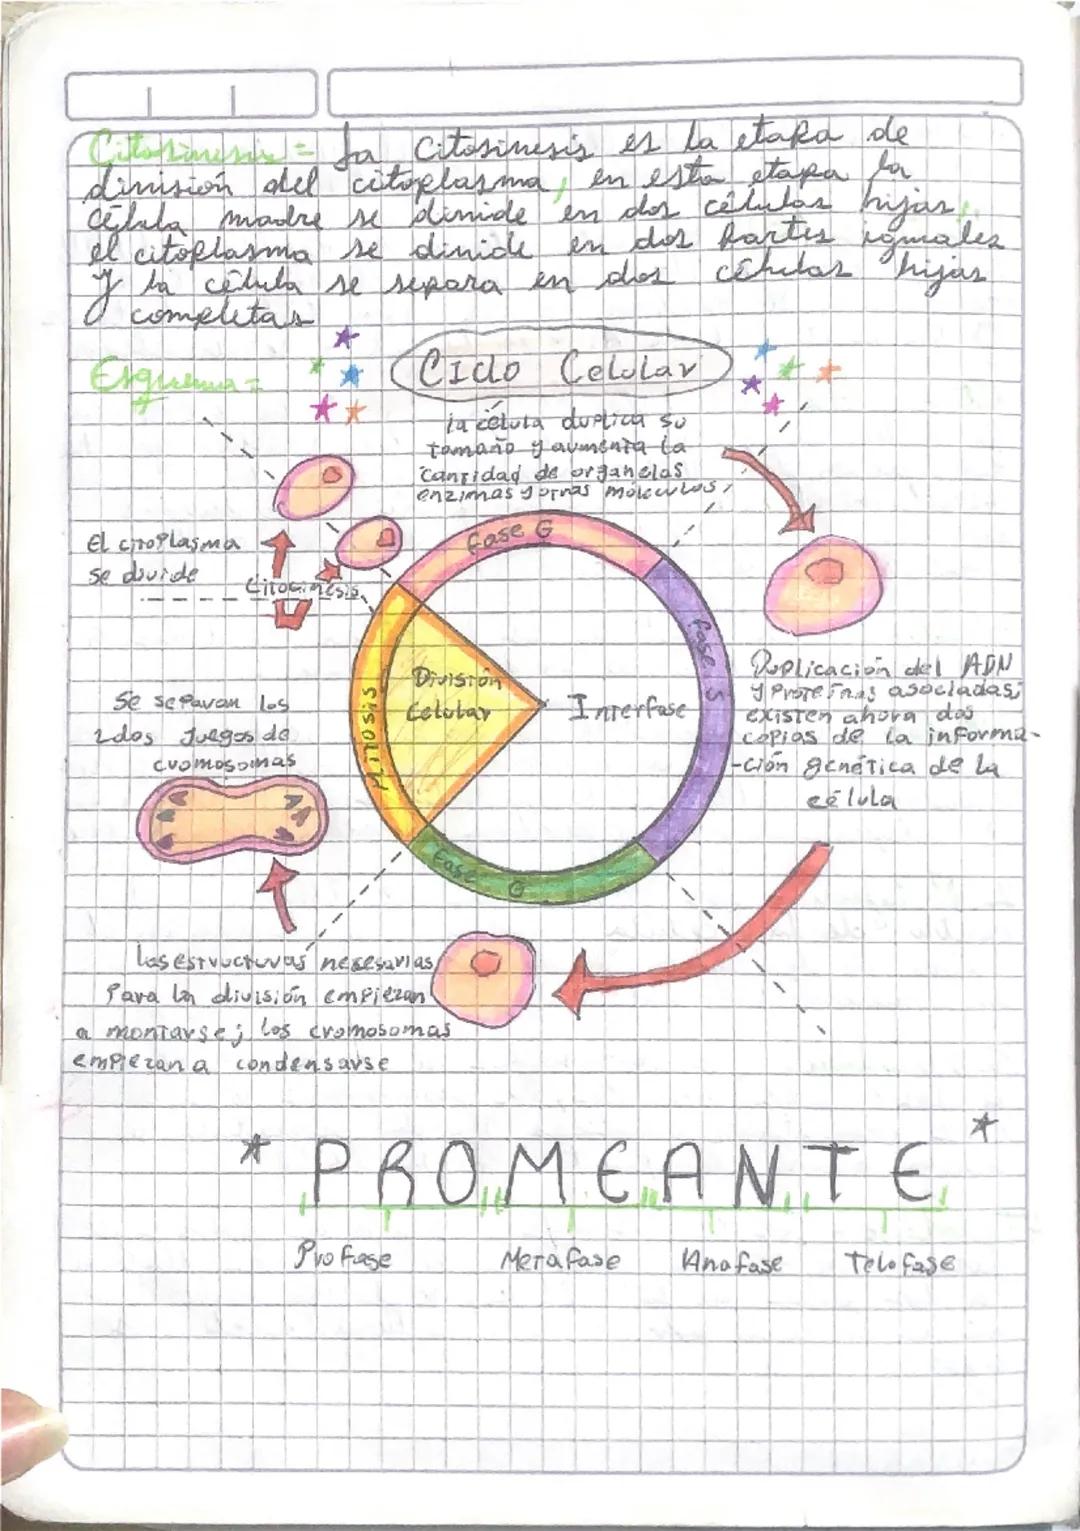 Citosinesis = La Citosinesis es la etapa de
división del citoplasma, en esta etapa la
célula madre se divide en dos células hijas,
el citoplasma se divide en dos partes iguales
y la célula se separa en dos células hijas
completas
Esquema =
Ciclo Celular
la célula duplica su
tamaño y aumenta la
cantidad de organelas
enzimas y otras moleculas,
fase G
El citoplasma
se divide
Citocinesis
fase S
Duplicación del ADN
y Proteínas asociadas;
existen ahora dos
copias de la informa-
-ción genética de la
célula
División
Celular
Interfase
Mitosis
Se separan los
2dos Juegos de
cromosomas
Fase G
las estructuras necesarias
Para la división empiezan
a montarse; los cromosomas
empiezan a condensarse
* PROMEANTE *
Profase Metafase Anafase Telofase